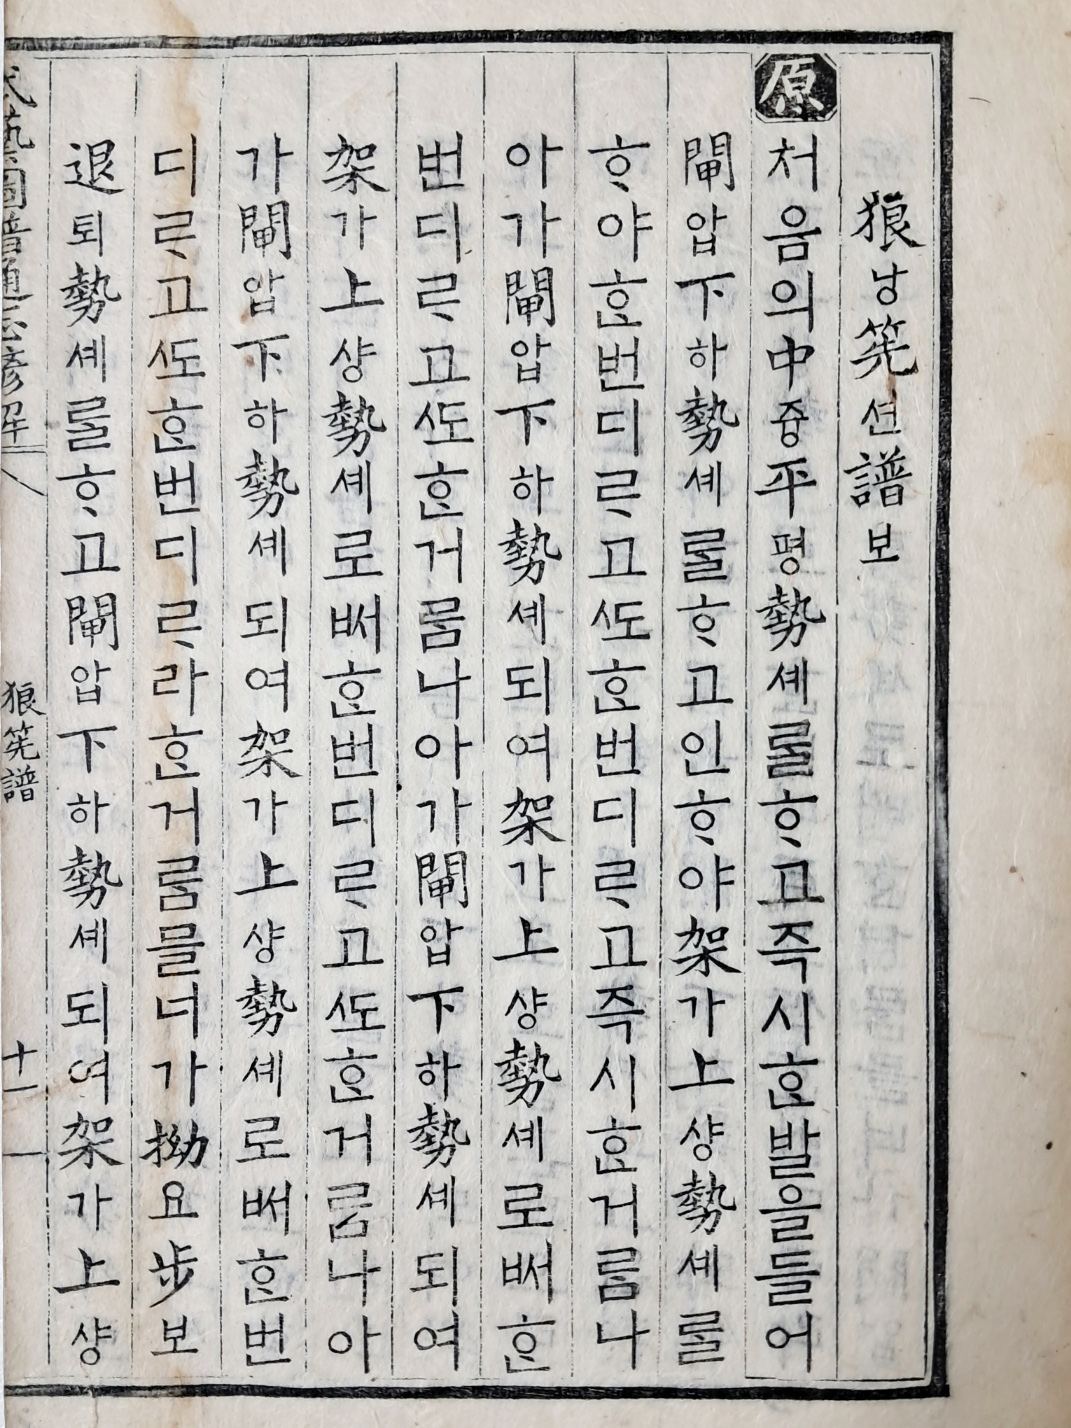 狼낭筅션譜보
原처음의中즁平평勢셰룰ᄒᆞ고즉시ᄒᆞᆫ발을들어
閘압下하勢셰룰ᄒᆞ고인ᄒᆞ야架가上샹勢셰를
ᄒᆞ야ᄒᆞᆫ번디ᄅᆞ고ᄯᅩᄒᆞᆫ번디ᄅᆞ고즉시ᄒᆞᆫ거룸나
아가閘압下하勢셰되여架가上샹勢셰로ᄡᅥᄒᆞᆫ
번디ᄅᆞ고ᄯᅩᄒᆞᆫ거룸나아가閘압下하勢셰되여
架가上샹勢셰로ᄡᅥᄒᆞᆫ번디ᄅᆞ고ᄯᅩᄒᆞᆫ거름나아
가閘압下하勢셰되여架가上샹勢셰로ᄡᅥᄒᆞᆫ번
디ᄅᆞ고ᄯᅩᄒᆞᆫ번디ᄅᆞ라ᄒᆞᆫ거룸믈너가拗요步보
退퇴勢셰룰ᄒᆞ고閘압下하勢셰되여架가上샹
武藝圖譜通志諺解
狼筅譜
十一